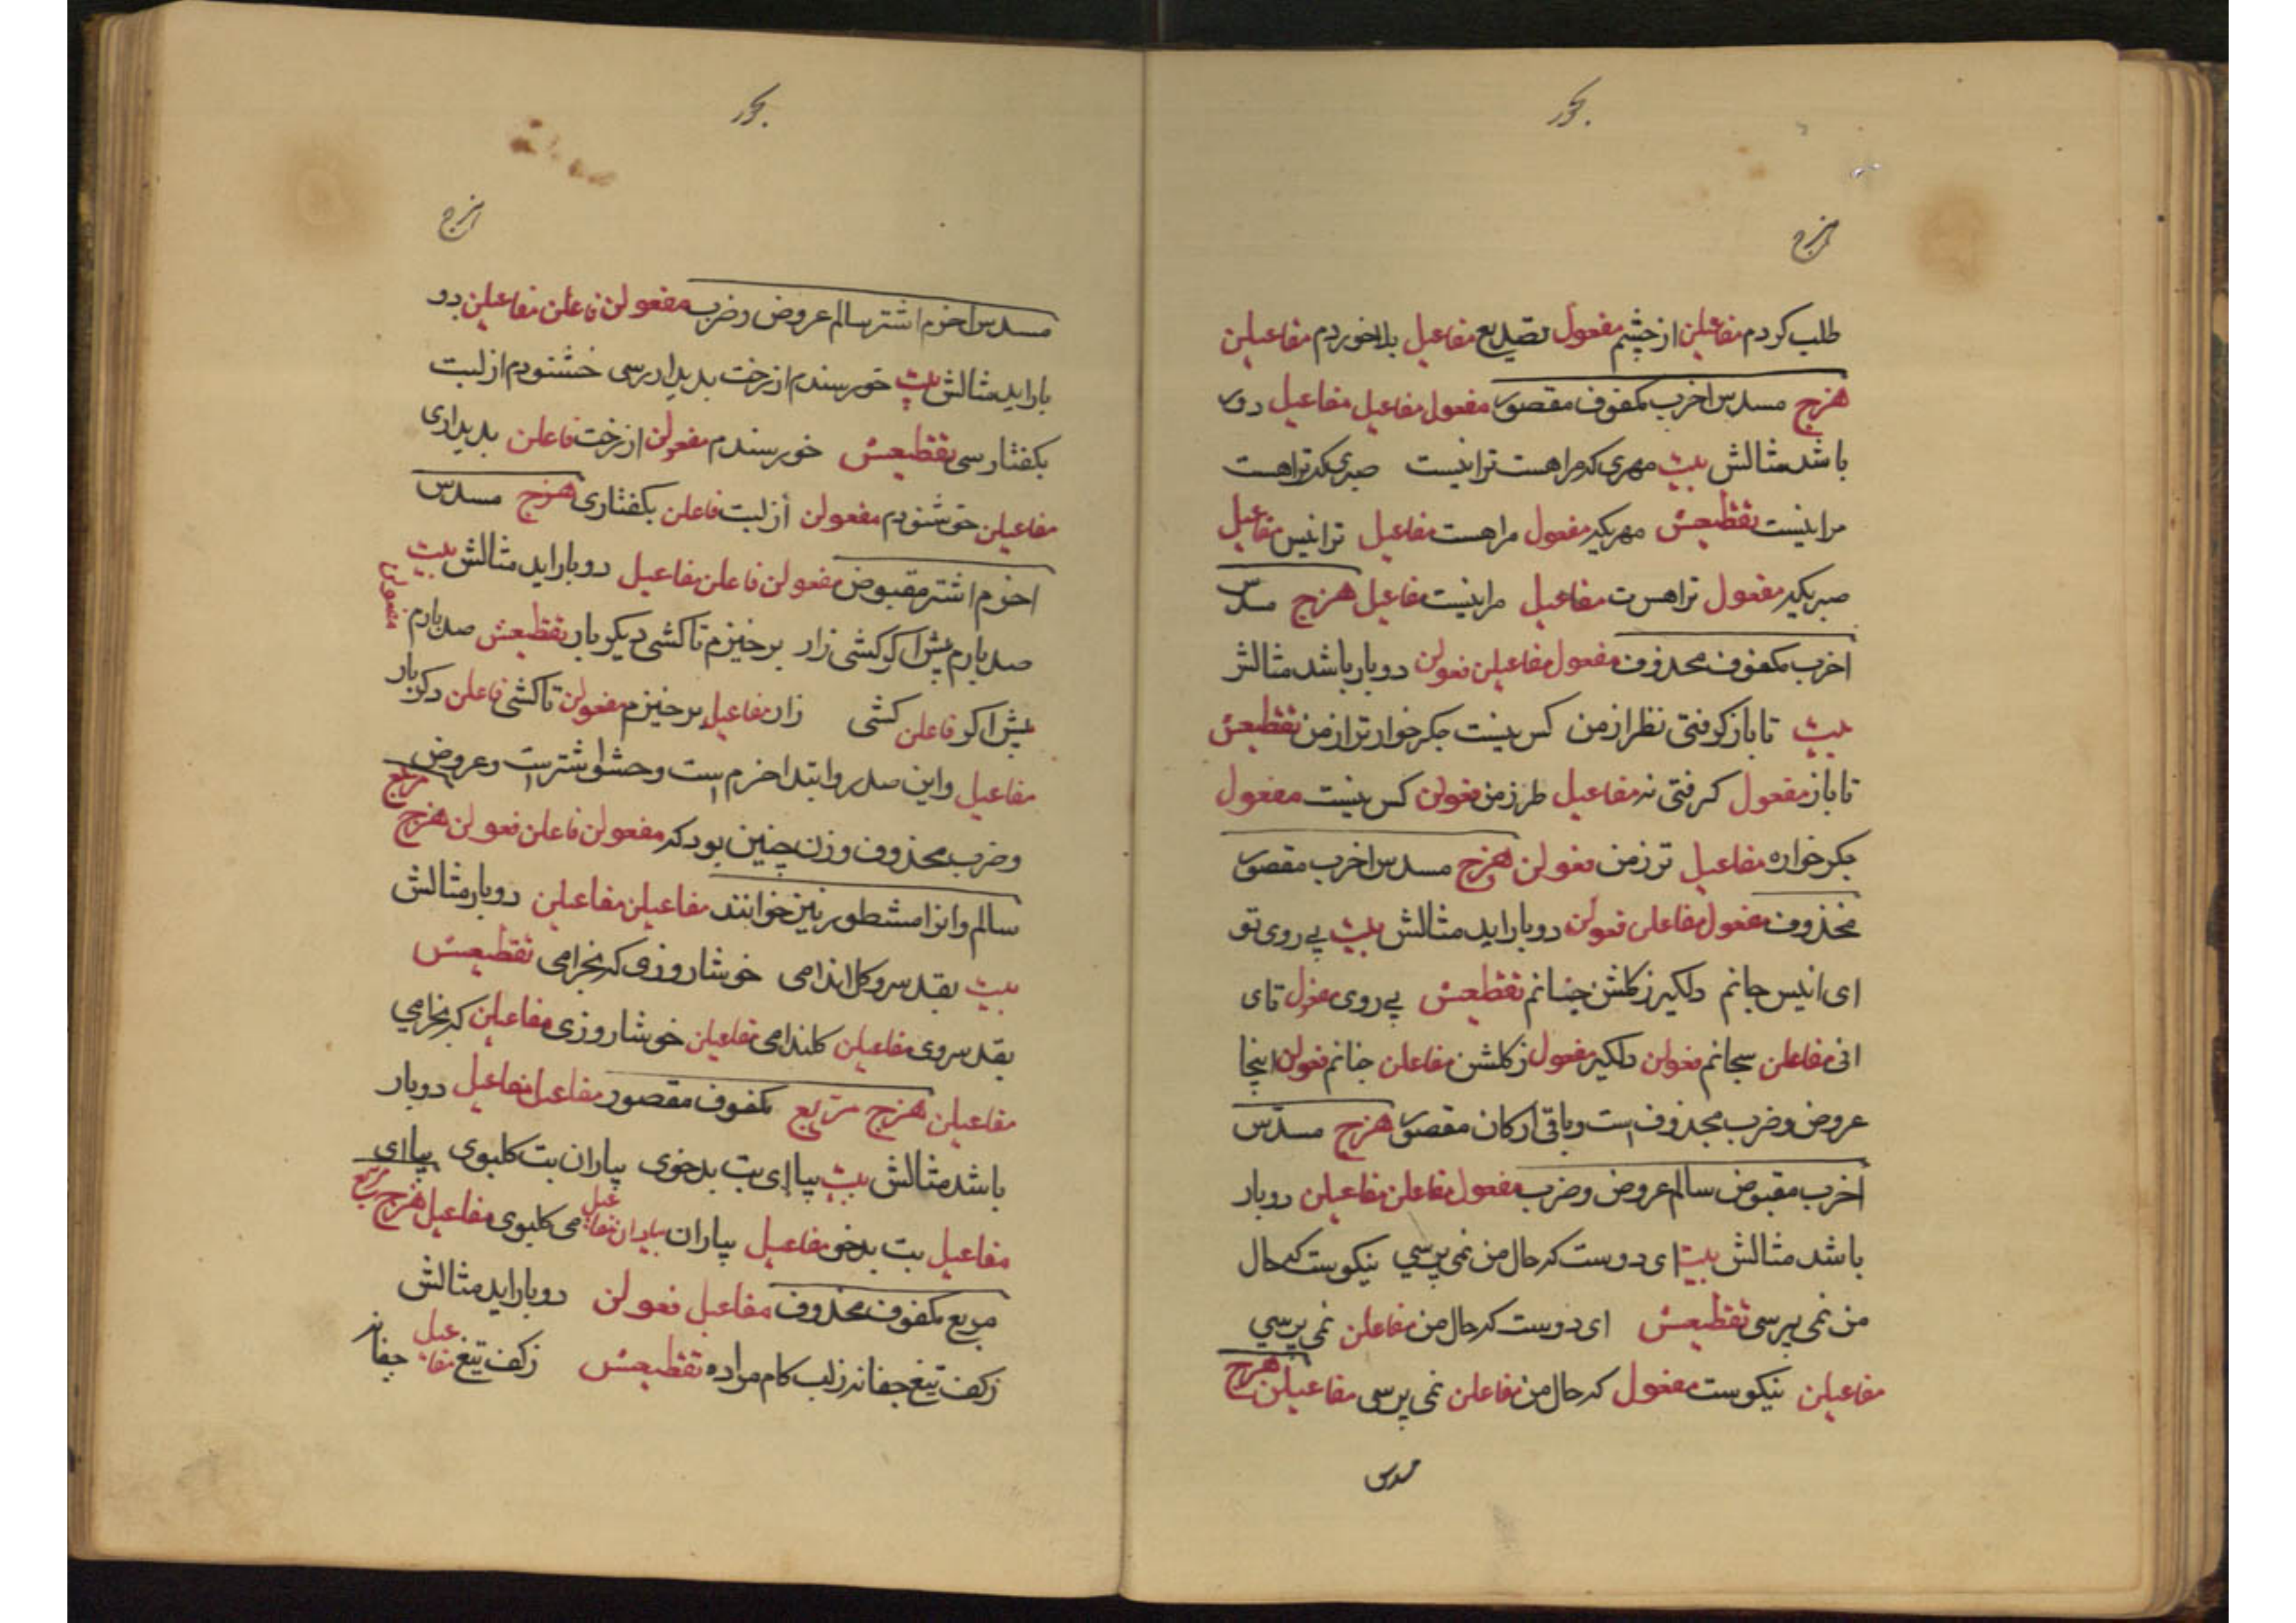 بحور
هزج
طلب کردم مفاعیلن از چشم مفعول تصدیع مفاعیل بلا خوردم مفاعیلن
هزج مسدس اخرب مکفوف مقصور مفعول مفاعیل مفاعیل دوبار
باشد مثالش بیت مهری که مراهست ترانیست صبری که تراهست
مرانیست تقطیعش مهریکه مفعول مراهست مفاعیل ترانیس مفاعیل
صبریکه مفعول تراهست مفاعیل مرانیست مفاعیل هزج مسدس
اخرب مکفوف محذوف مفعول مفاعیلن فعولن دوبار باشد مثالش
بیت تا بازگرفتی نظر از من کس نیست جکر خوار تر از من تقطیعش
تا باز مفعول کرفتی نه مفاعیل طرزمن فعولن کس نیست مفعول
جکر خواره مفاعیل ترزمن فعولن هزج مسدس اخرب مقصور
محذوف مفعول مفاعلن فعولن دوبار اید مثالش بیت بے روی تو
ای انیس جانم دلکیر ز کلشن جنانم تقطیعش بے روی مفعول تای
انی مفاعلن سجانم فعولن دلکیر مفعول ز کلشن مفاعلن جنانم فعولن اینجا
عروض و ضرب محذوف است و باقی ارکان مقصور هزج مسدس
اخرب مقبوض سالم عروض و ضرب مفعول مفاعلن مفاعیلن دوبار
باشد مثالش بیت ای دوست که حال من نمی پرسی نیکوست که حال
من نمی پرسی تقطیعش ای دوست که حال من مفاعلن نمی پرسی
مفاعیلن نیکوست مفعول که حال من مفاعلن نمی پرسی مفاعیلن هزج
مسدس
بحور
هزج
مسدس اخرم اشتر سالم عروض و ضرب مفعولن فاعلن مفاعیلن دو
بار اید مثالش بیت خورسندم از رخت بدیداررسی خشنودم از لبت
بکفتاررسی تقطیعش خورسندم مفعولن از رخت فاعلن بدیداری
مفاعیلن خوشنودم مفعولن از لبت فاعلن بکفتاری هزج مسدس
اخرم اشتر مقبوض مفعولن فاعلن مفاعیل دوبار اید مثالش بیت
صدبارم پیش اکر کشی زار برخیزم تا کشی دیکر بار تقطیعش صدبارم مفعولن
پیش اکر فاعلن کشی زار مفاعیل برخیزم مفعولن تا کشی فاعلن دکر بار
مفاعیل واین صدر وابتدا اخرم است وحشو اشترست و عروض
و ضرب محذوف وزن چنین بود که مفعولن فاعلن فعولن هزج مربع
سالم وانرا مشطور نیز خوانند مفاعیلن مفاعیلن دوبار مثالش
بیت بقد سرو کل اندامی خوشا روزی که بخرامی تقطیعش
بقد سروی مفاعیلن کلندامی مفاعیلن خوشا روزی مفاعیلن که بخرامی
مفاعیلن هزج مربع مکفوف مقصور مفاعیل مفاعیل دوبار
باشد مثالش بیت بیا ای بت بدخوی بیاران بت کلبوی بیا ای
مفاعیل بت بدخو مفاعیل بیاران بیاران مفاعیل می کلبوی مفاعیل هزج مربع
مربع مکفوف محذوف مفاعیل فعولن دوبار اید مثالش
زکف تیغ جفا نه زلب کام مراده تقطیعش زکف تیغ مفاعیل جفا نه